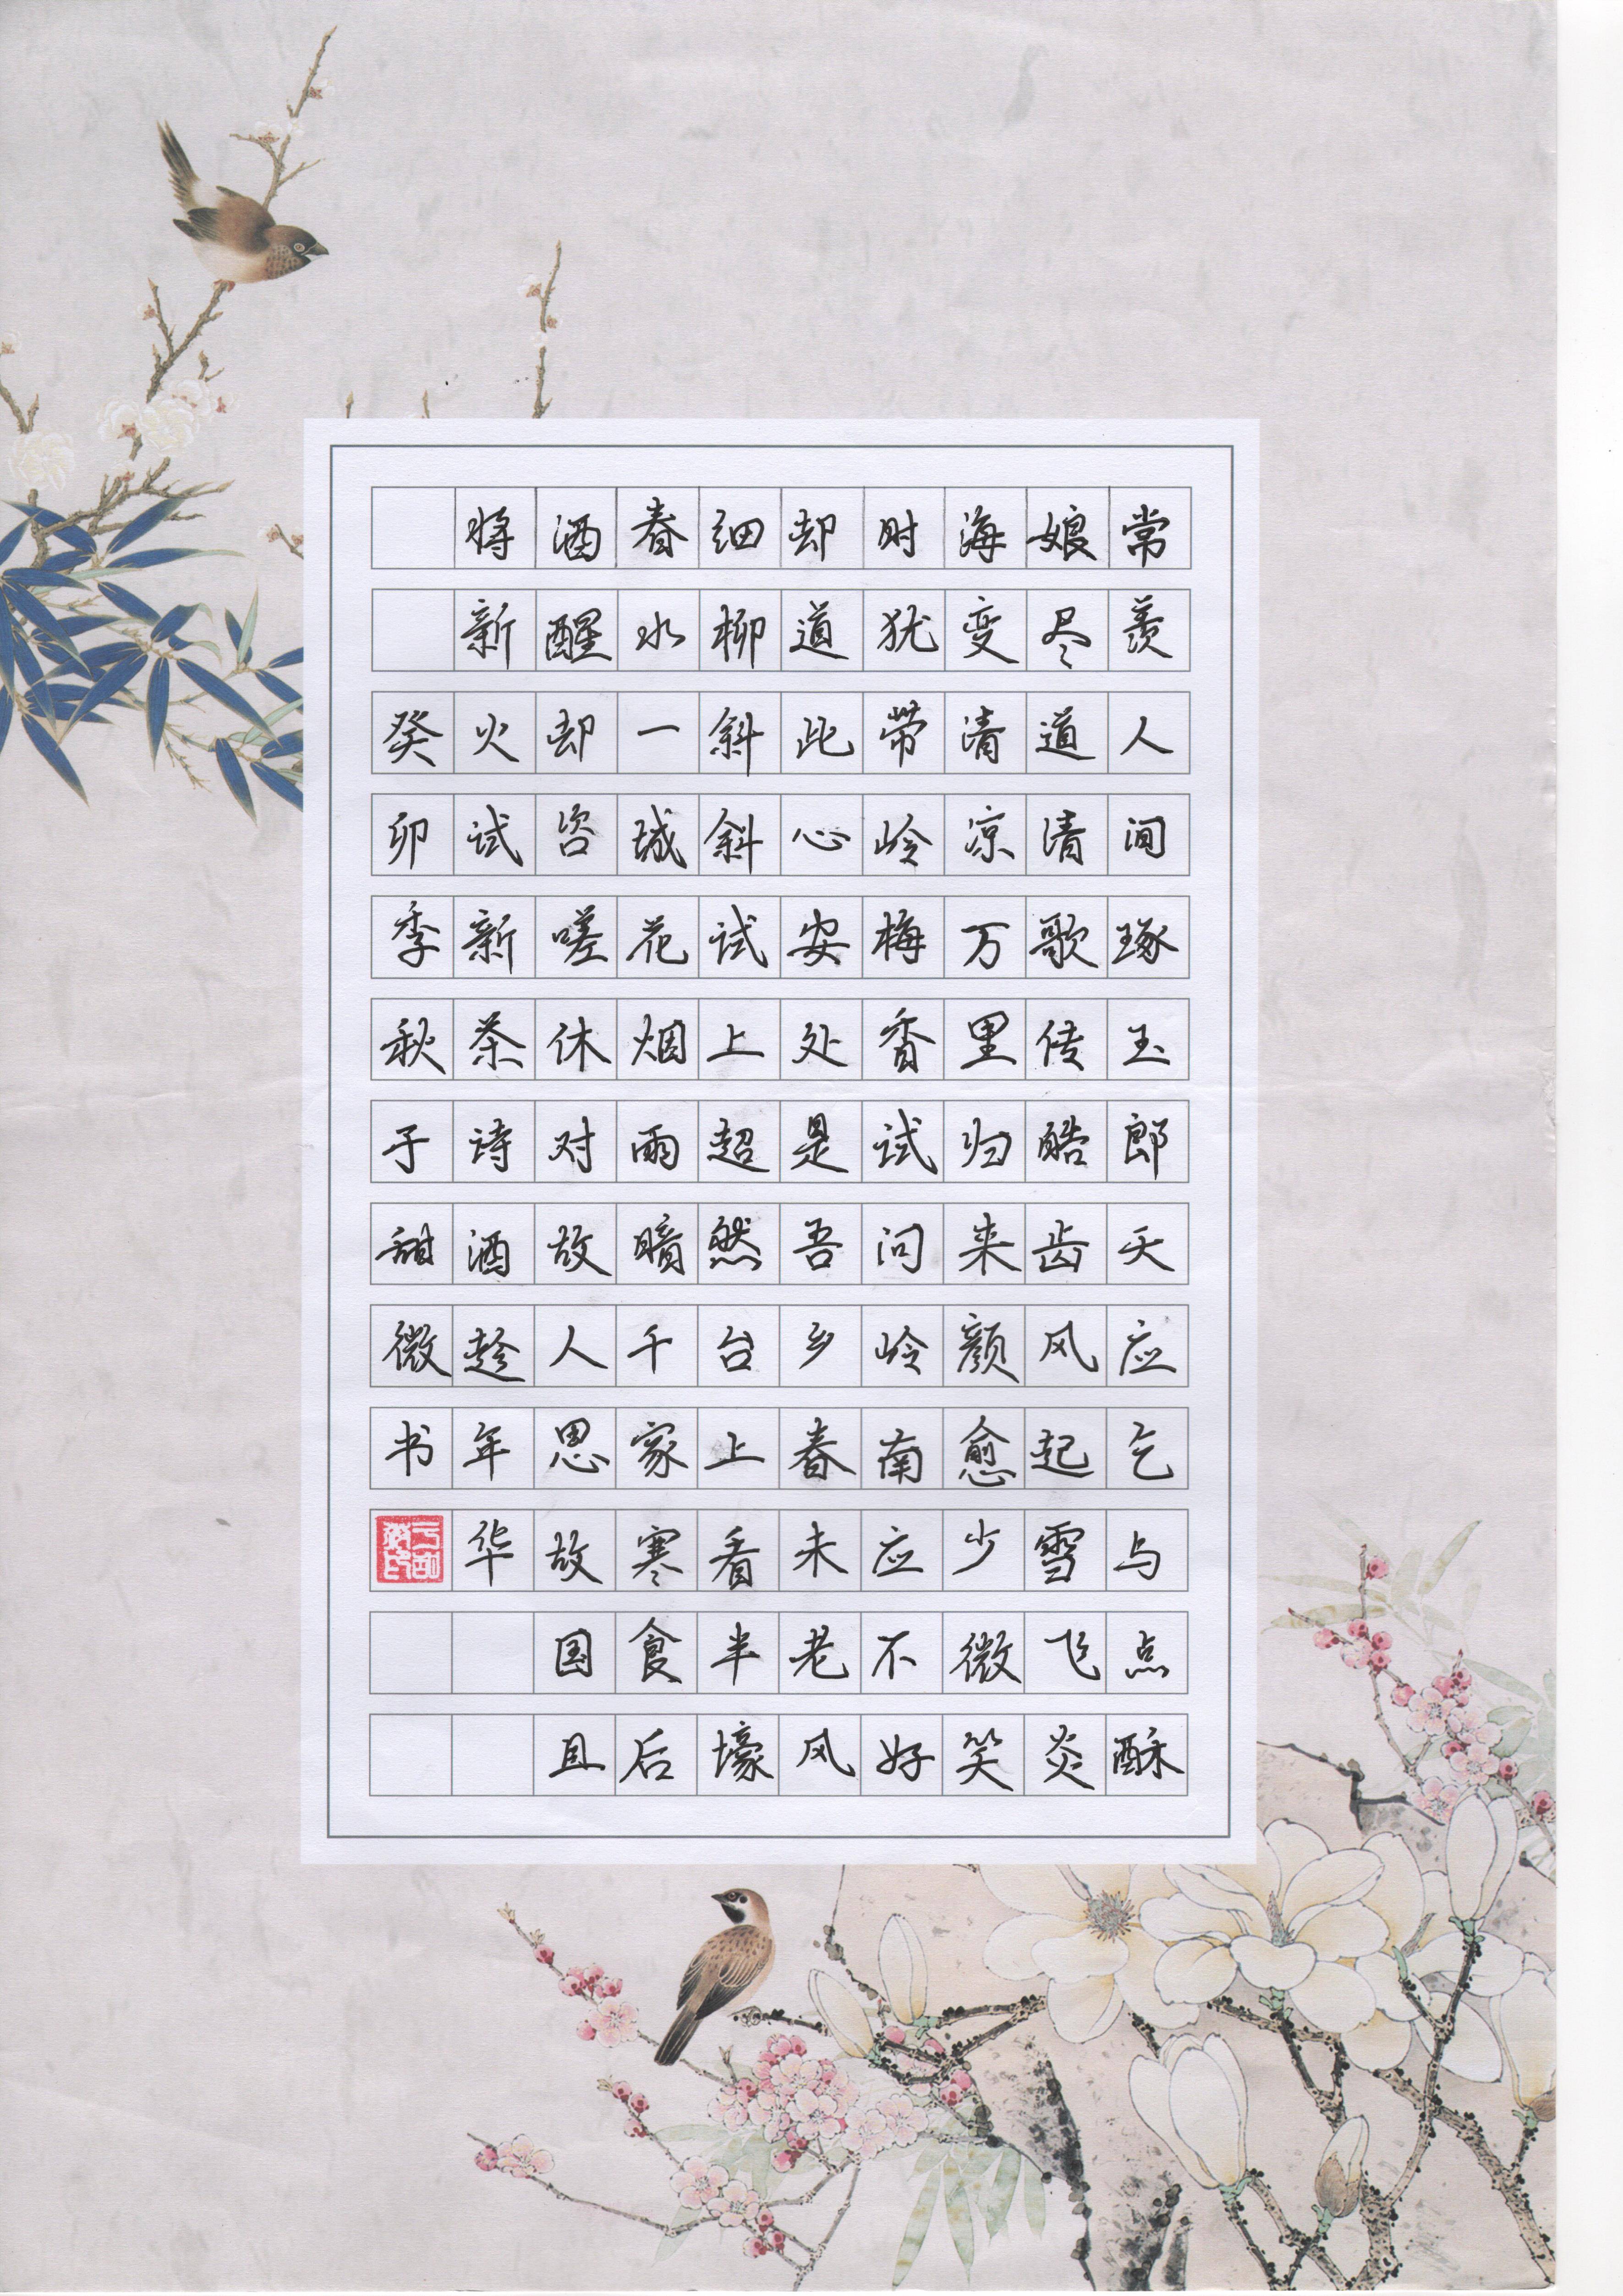 常羡人间琢玉郎天应乞与点酥
娘尽道清歌传皓齿风起雪飞炎
海变清凉万里归来颜愈少微笑
时犹带岭梅香试问岭南应不好
却道此心安处是吾乡春未老风
细柳斜斜试上超然台上看半壕
春水一城花烟雨暗千家寒食后
酒醒却咨嗟休对故人思故国且
将新火试新茶诗酒趁年华
癸卯季秋于甜微书